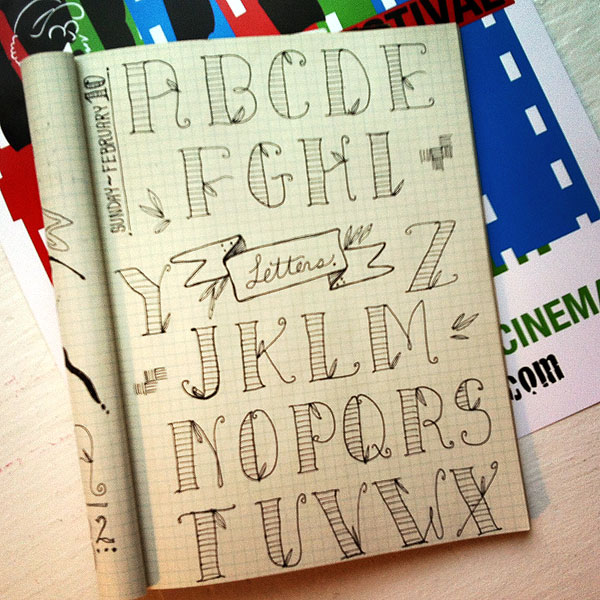 FESTIVAL
SUNDAY~FEBRUARY 10
A B C D E
F G H I
Letters.
Y Z
J K L M
N O P Q R S
T U V W X
CINEMA
.com
2